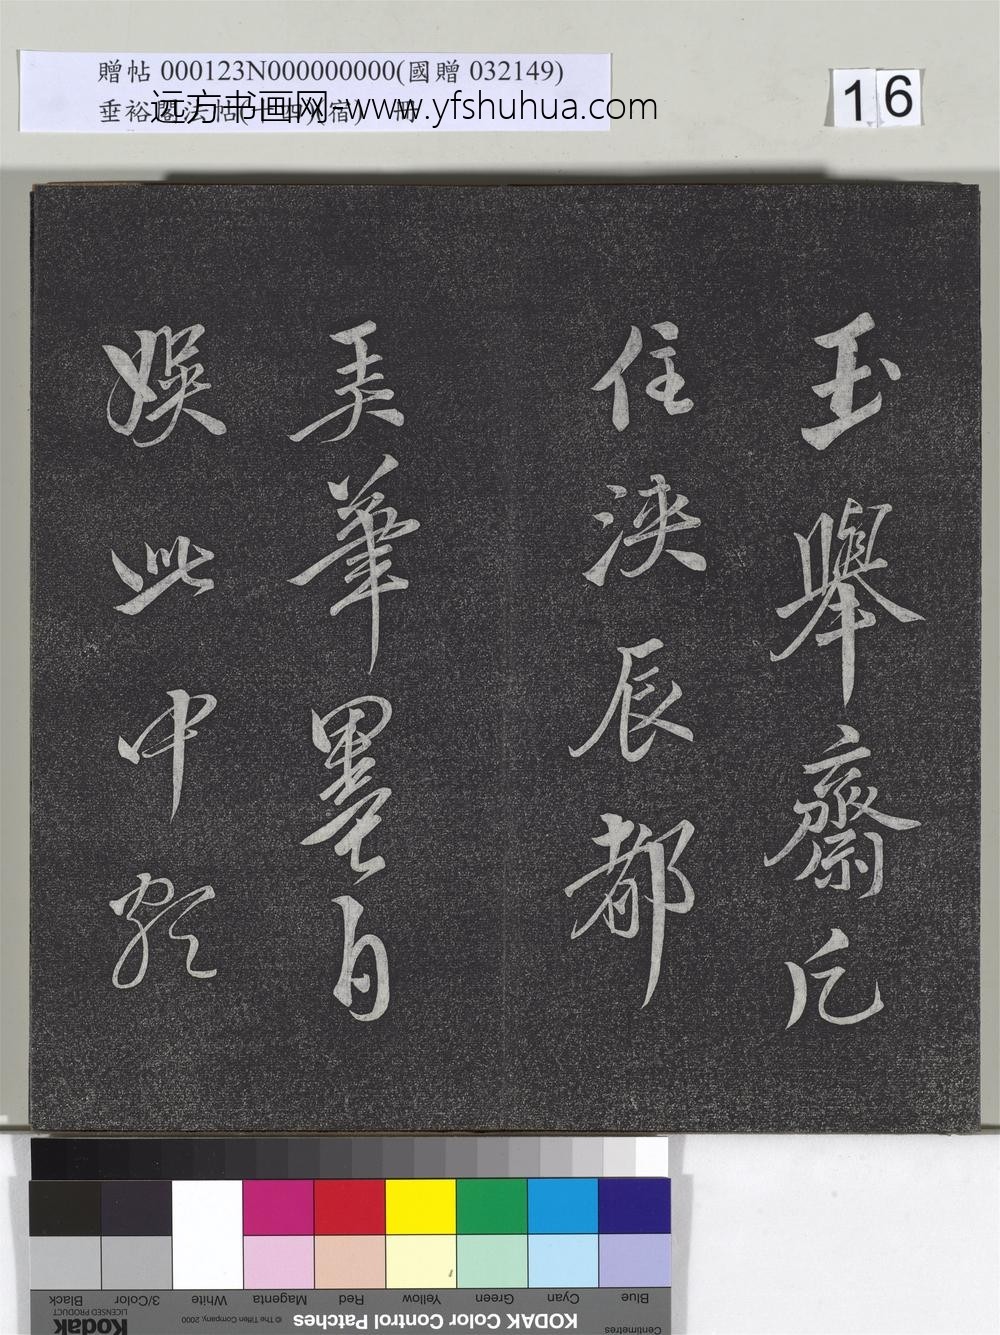 贈帖 000123N000000000(國贈 032149)
垂裕閣法帖(十四)(宿) 冊
远方书画网-www.yfshuhua.com
16
玉舉齋凡
住浹辰都
筆墨自
娛此中
Blue
Cyan
Green
Yellow
Red
Magenta
White
3/Color
Black
Centimetres
KODAK Color Control Patches
© The Tiffen Company, 2000
Kodak
LICENSED PRODUCT